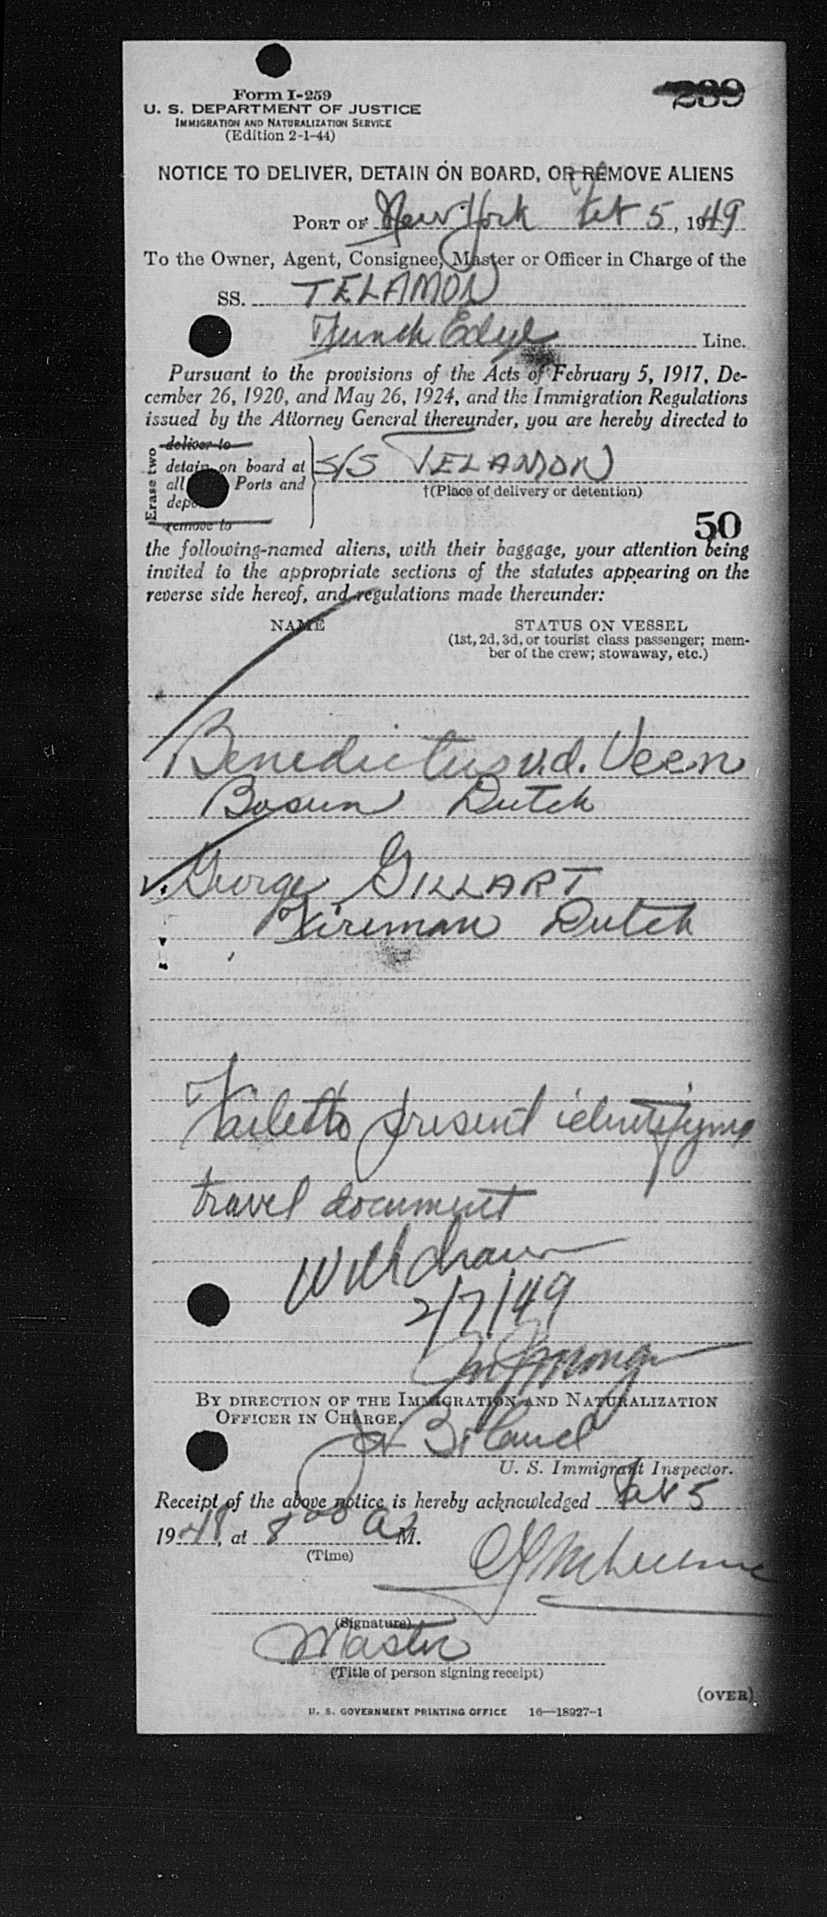 Form I-259
239
U. S. DEPARTMENT OF JUSTICE
IMMIGRATION AND NATURALIZATION SERVICE
(Edition 2-1-44)
NOTICE TO DELIVER, DETAIN ON BOARD, OR REMOVE ALIENS
PORT OF New York Feb 5, 1949
To the Owner, Agent, Consignee, Master or Officer in Charge of the
SS. TELAMON
Funch Edye Line.
Pursuant to the provisions of the Acts of February 5, 1917, De-
cember 26, 1920, and May 26, 1924, and the Immigration Regulations
issued by the Attorney General thereunder, you are hereby directed to
Erase two
deliver to
detain on board at
all Ports and
remove to
S/S TELAMON
†(Place of delivery or detention)
50
the following-named aliens, with their baggage, your attention being
invited to the appropriate sections of the statutes appearing on the
reverse side hereof, and regulations made thereunder:
NAME STATUS ON VESSEL
(1st, 2d, 3d, or tourist class passenger; mem-
ber of the crew; stowaway, etc.)
Benedictus v.d. Veen
Bosun Dutch
George GILLART
Fireman Dutch
Failed to present identifying
travel document
Withdrawn
2/7/49
BY DIRECTION OF THE IMMIGRATION AND NATURALIZATION
OFFICER IN CHARGE.
U. S. Immigrant Inspector.
Receipt of the above notice is hereby acknowledged Feb 5
19 at 8 00 A M.
(Time)
(Signature)
Master
(Title of person signing receipt)
(OVER)
U. S. GOVERNMENT PRINTING OFFICE 16—18927-1